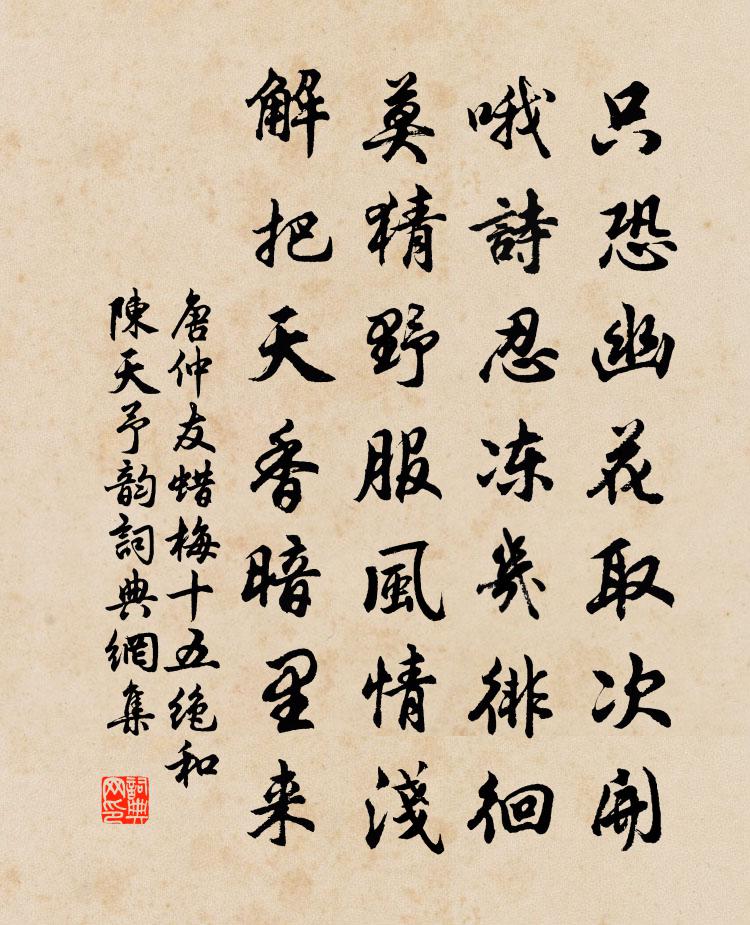 只恐幽花取次開
哦詩忍冻幾徘徊
莫猜野服風情淺
解把天香暗里来
唐仲友蜡梅十五绝和
陳天予韵詞典網集
詞典
网印